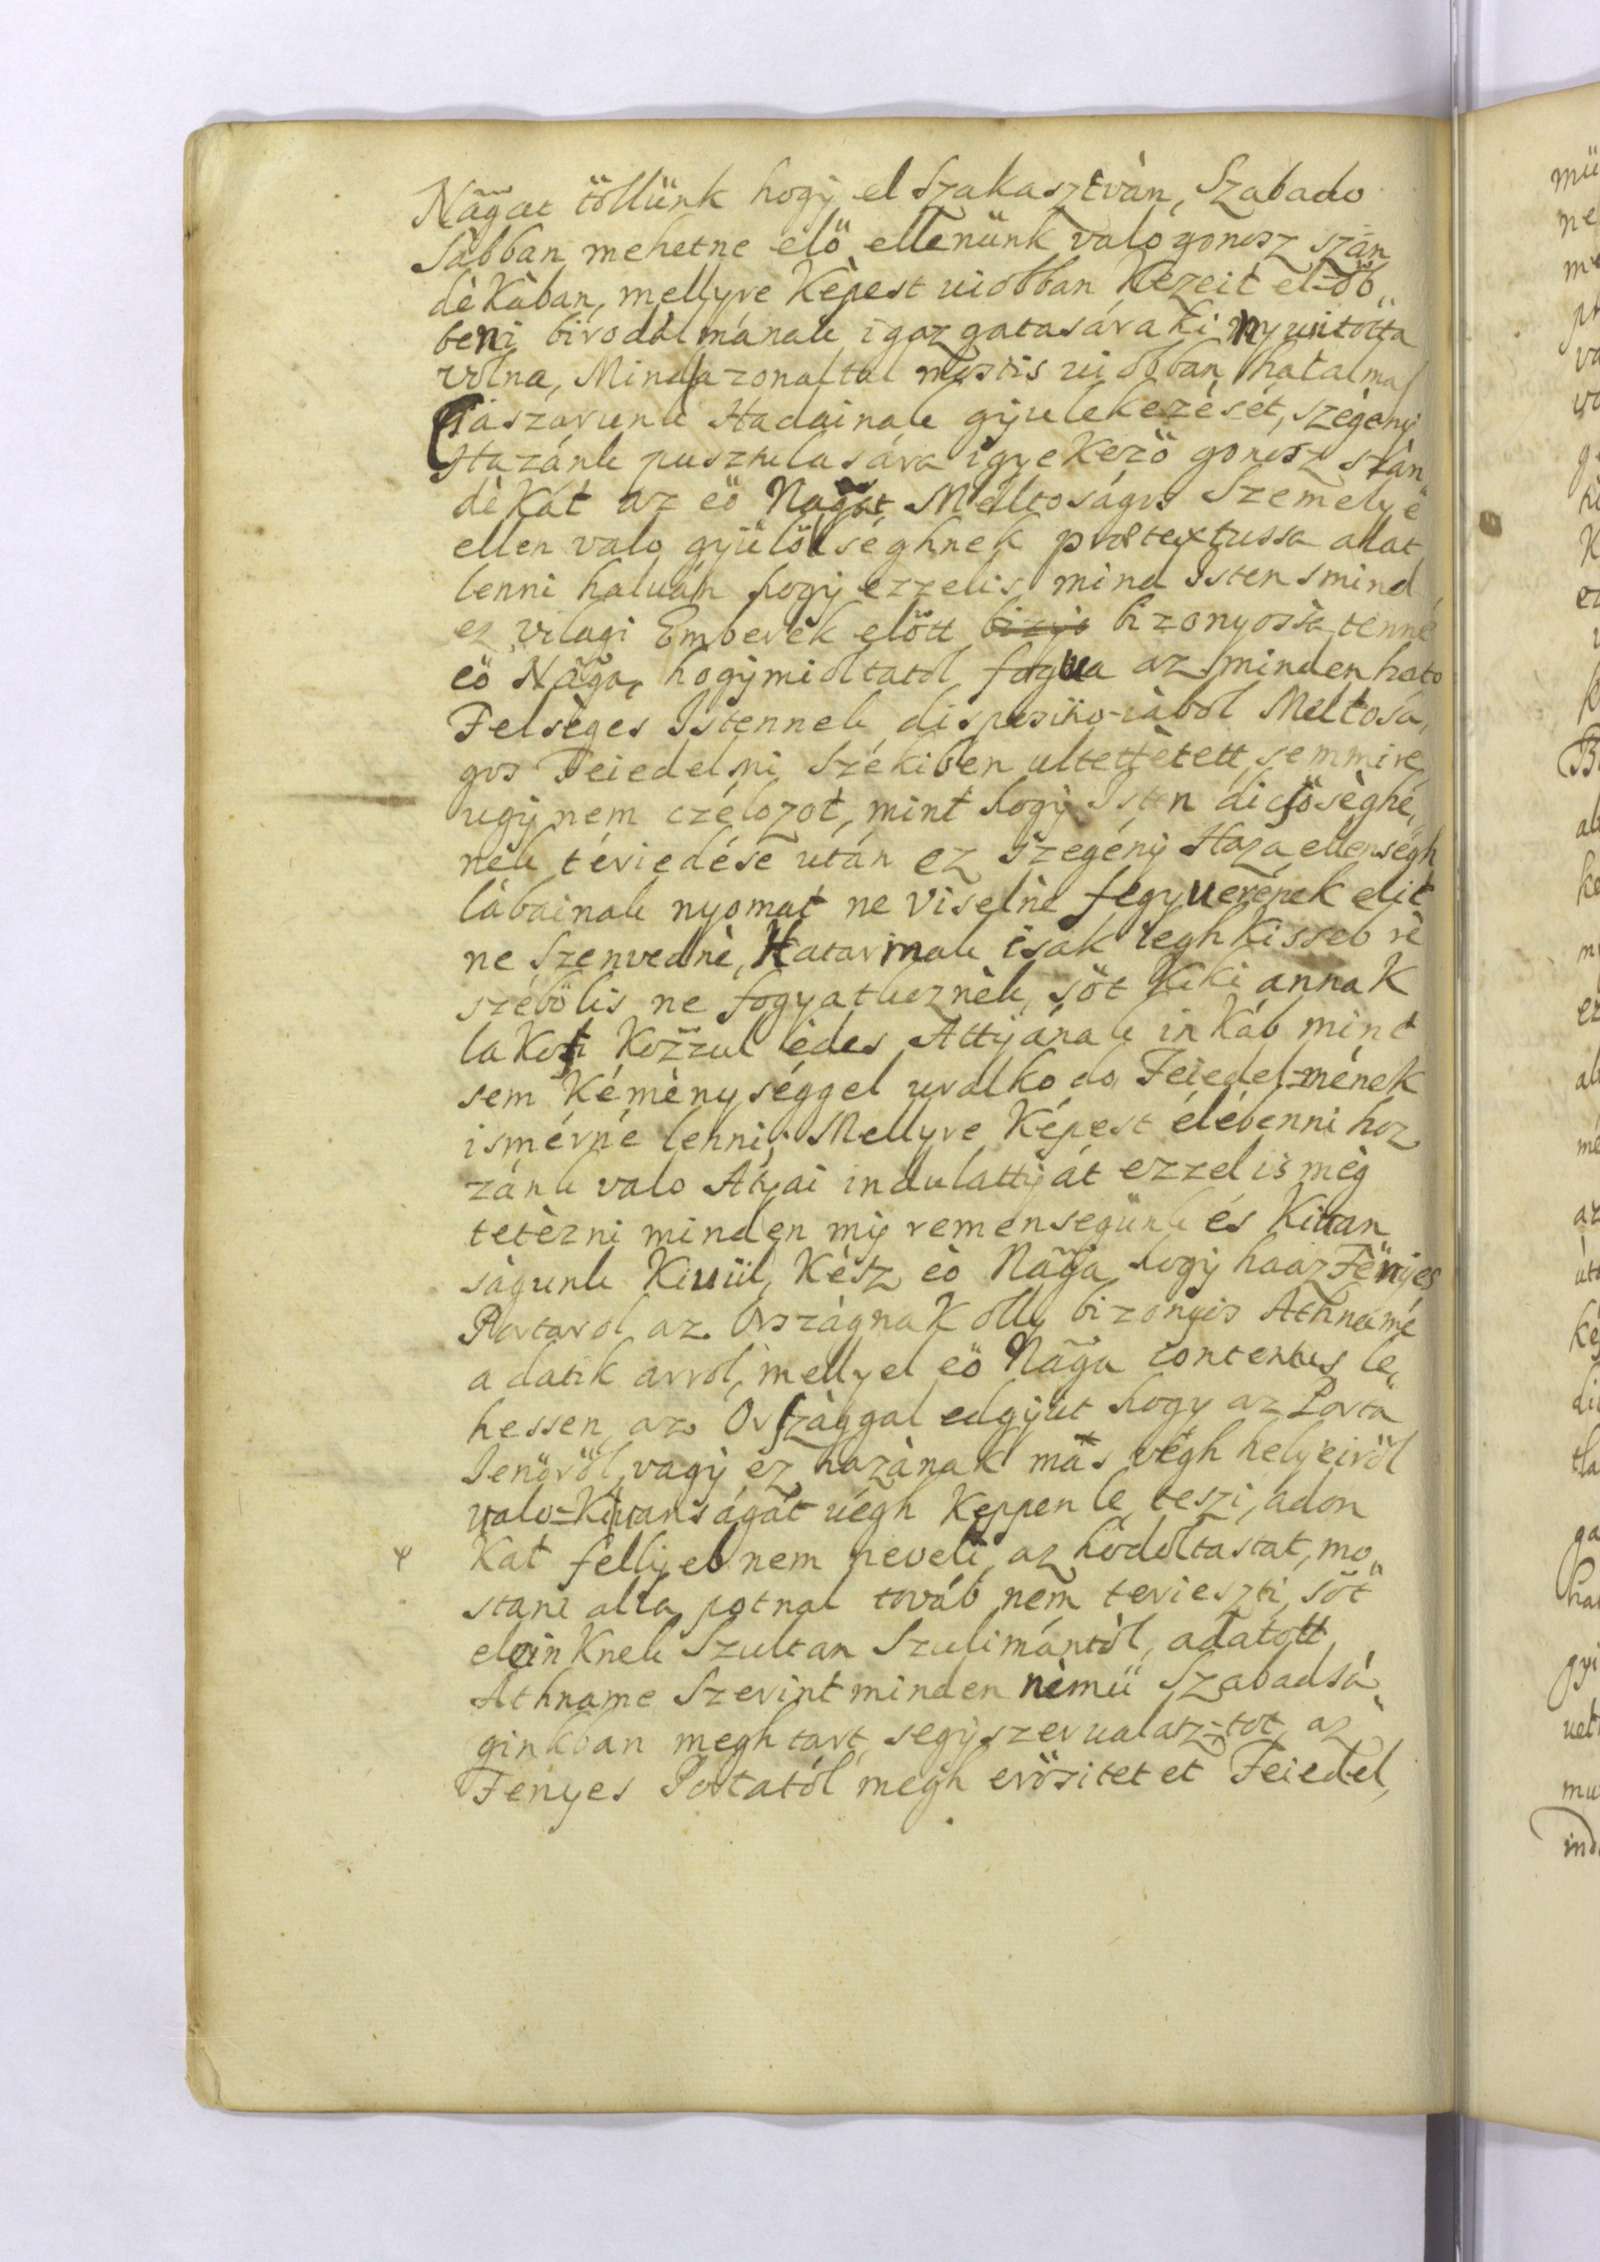 Nãgat töllünk hogÿ el szakasztván, Szabado
sabban mehetne elö ellenünk valo gonosz szán
dèkàban, mellyre Kèpest uiobban Kezeit el=öb„
beni birodalmának igazgatasára ki nyuitotta
volna, Mindazonaltal mostis uiobban hatalmas
Csaszarunk Hadainak gyulekezését, szégény
Hazánk pusztulasára igyekezö gonosz szán
dèkát az eö Nagãt Méltoságos Szemelye
ellen valo gyülölséghnek prætextussa alat
lenni haluán hogÿ ezzelis mind Isten smind
ez vilagi Emberek elött bizonyossà tenné
eö Nãga, hogÿ mioltatol fogua az minden hato
Felséges Istennek dispositio-iàbol Méltosá,
gos Feiedelmi Székiben ultettètett semmire
ugÿ nem czélozot, mint hogÿ Isten dicsöséghé,
nek tériedése után ez szegény Haza ellenségh
lábainak nyomat ne viselnè fegyuerének elit
ne szenvednè, Hatarinak csak legh kisseb rè
szébölis ne fogyatkoznék, söt kiki annak
lakosi Kozzul èdes Attÿának inkáb mint
sem Kéménységgel uralkodo Feiedel=mének
ismérné lenni; Mellyre Képest élébenni hoz
zánk valo Atyai indulattÿát ezzel is mèg
tetèzni minden mÿ remenségünk és Kiuan
ságunk Kiuül, Kész eö Nãga hogÿ ha az Fényes
Portarol az Orszàgnak olly bizonyos Athnamé
adatik arrol, mellyel eö Nãga contentus le,
hessen, az Orszàggal edgÿut hogy az Porta
Jenöröl, vagÿ ez hazànak mas végh helyeiröl
valo=Kiuanságát uégh Keppen le teszi, adon
Kat fellÿeb nem neveli, az hodoltastat, mo„
stani alla potnal továb nem terieszti, söt
eleinknek Szultan Szulimántòl, adatott
Athname Szerint minden nèmü Szabadsá
ginkban megh tart, segÿszer ualasz=tot, az
Fenyes Portatól megh erösitetet Feiedel,